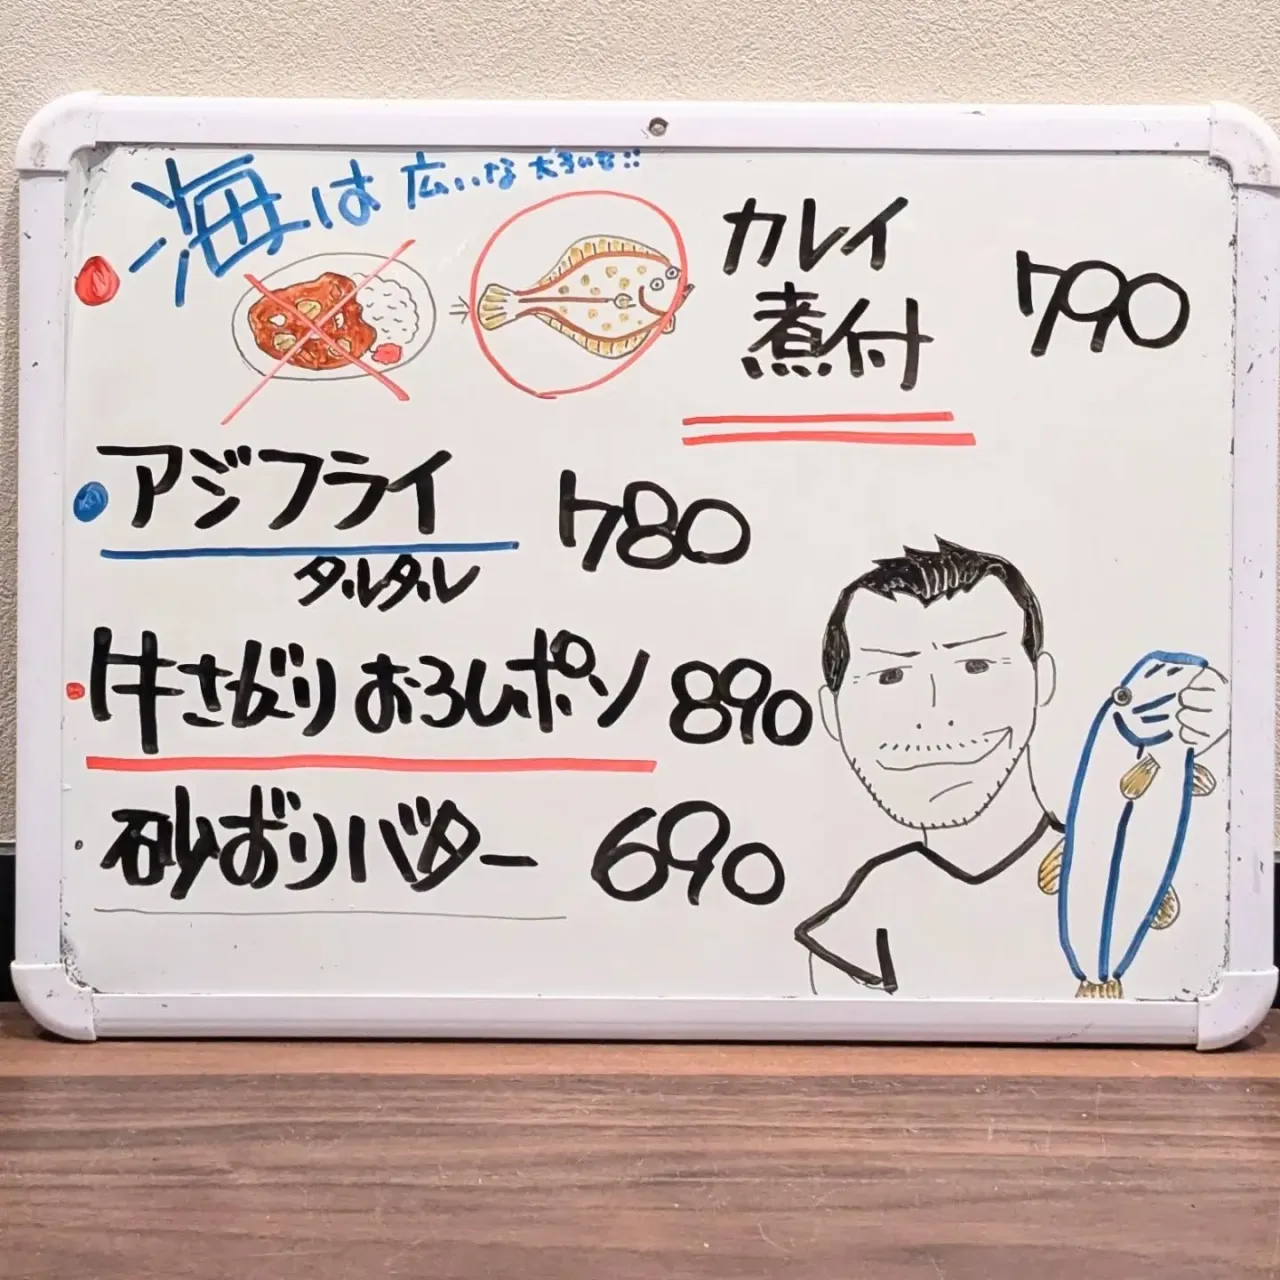 海は 広いな 大きいな!!
カレイ
煮付 790
アジフライ 780
タルタル
牛さがり おろしポン 890
砂ずりバター 690